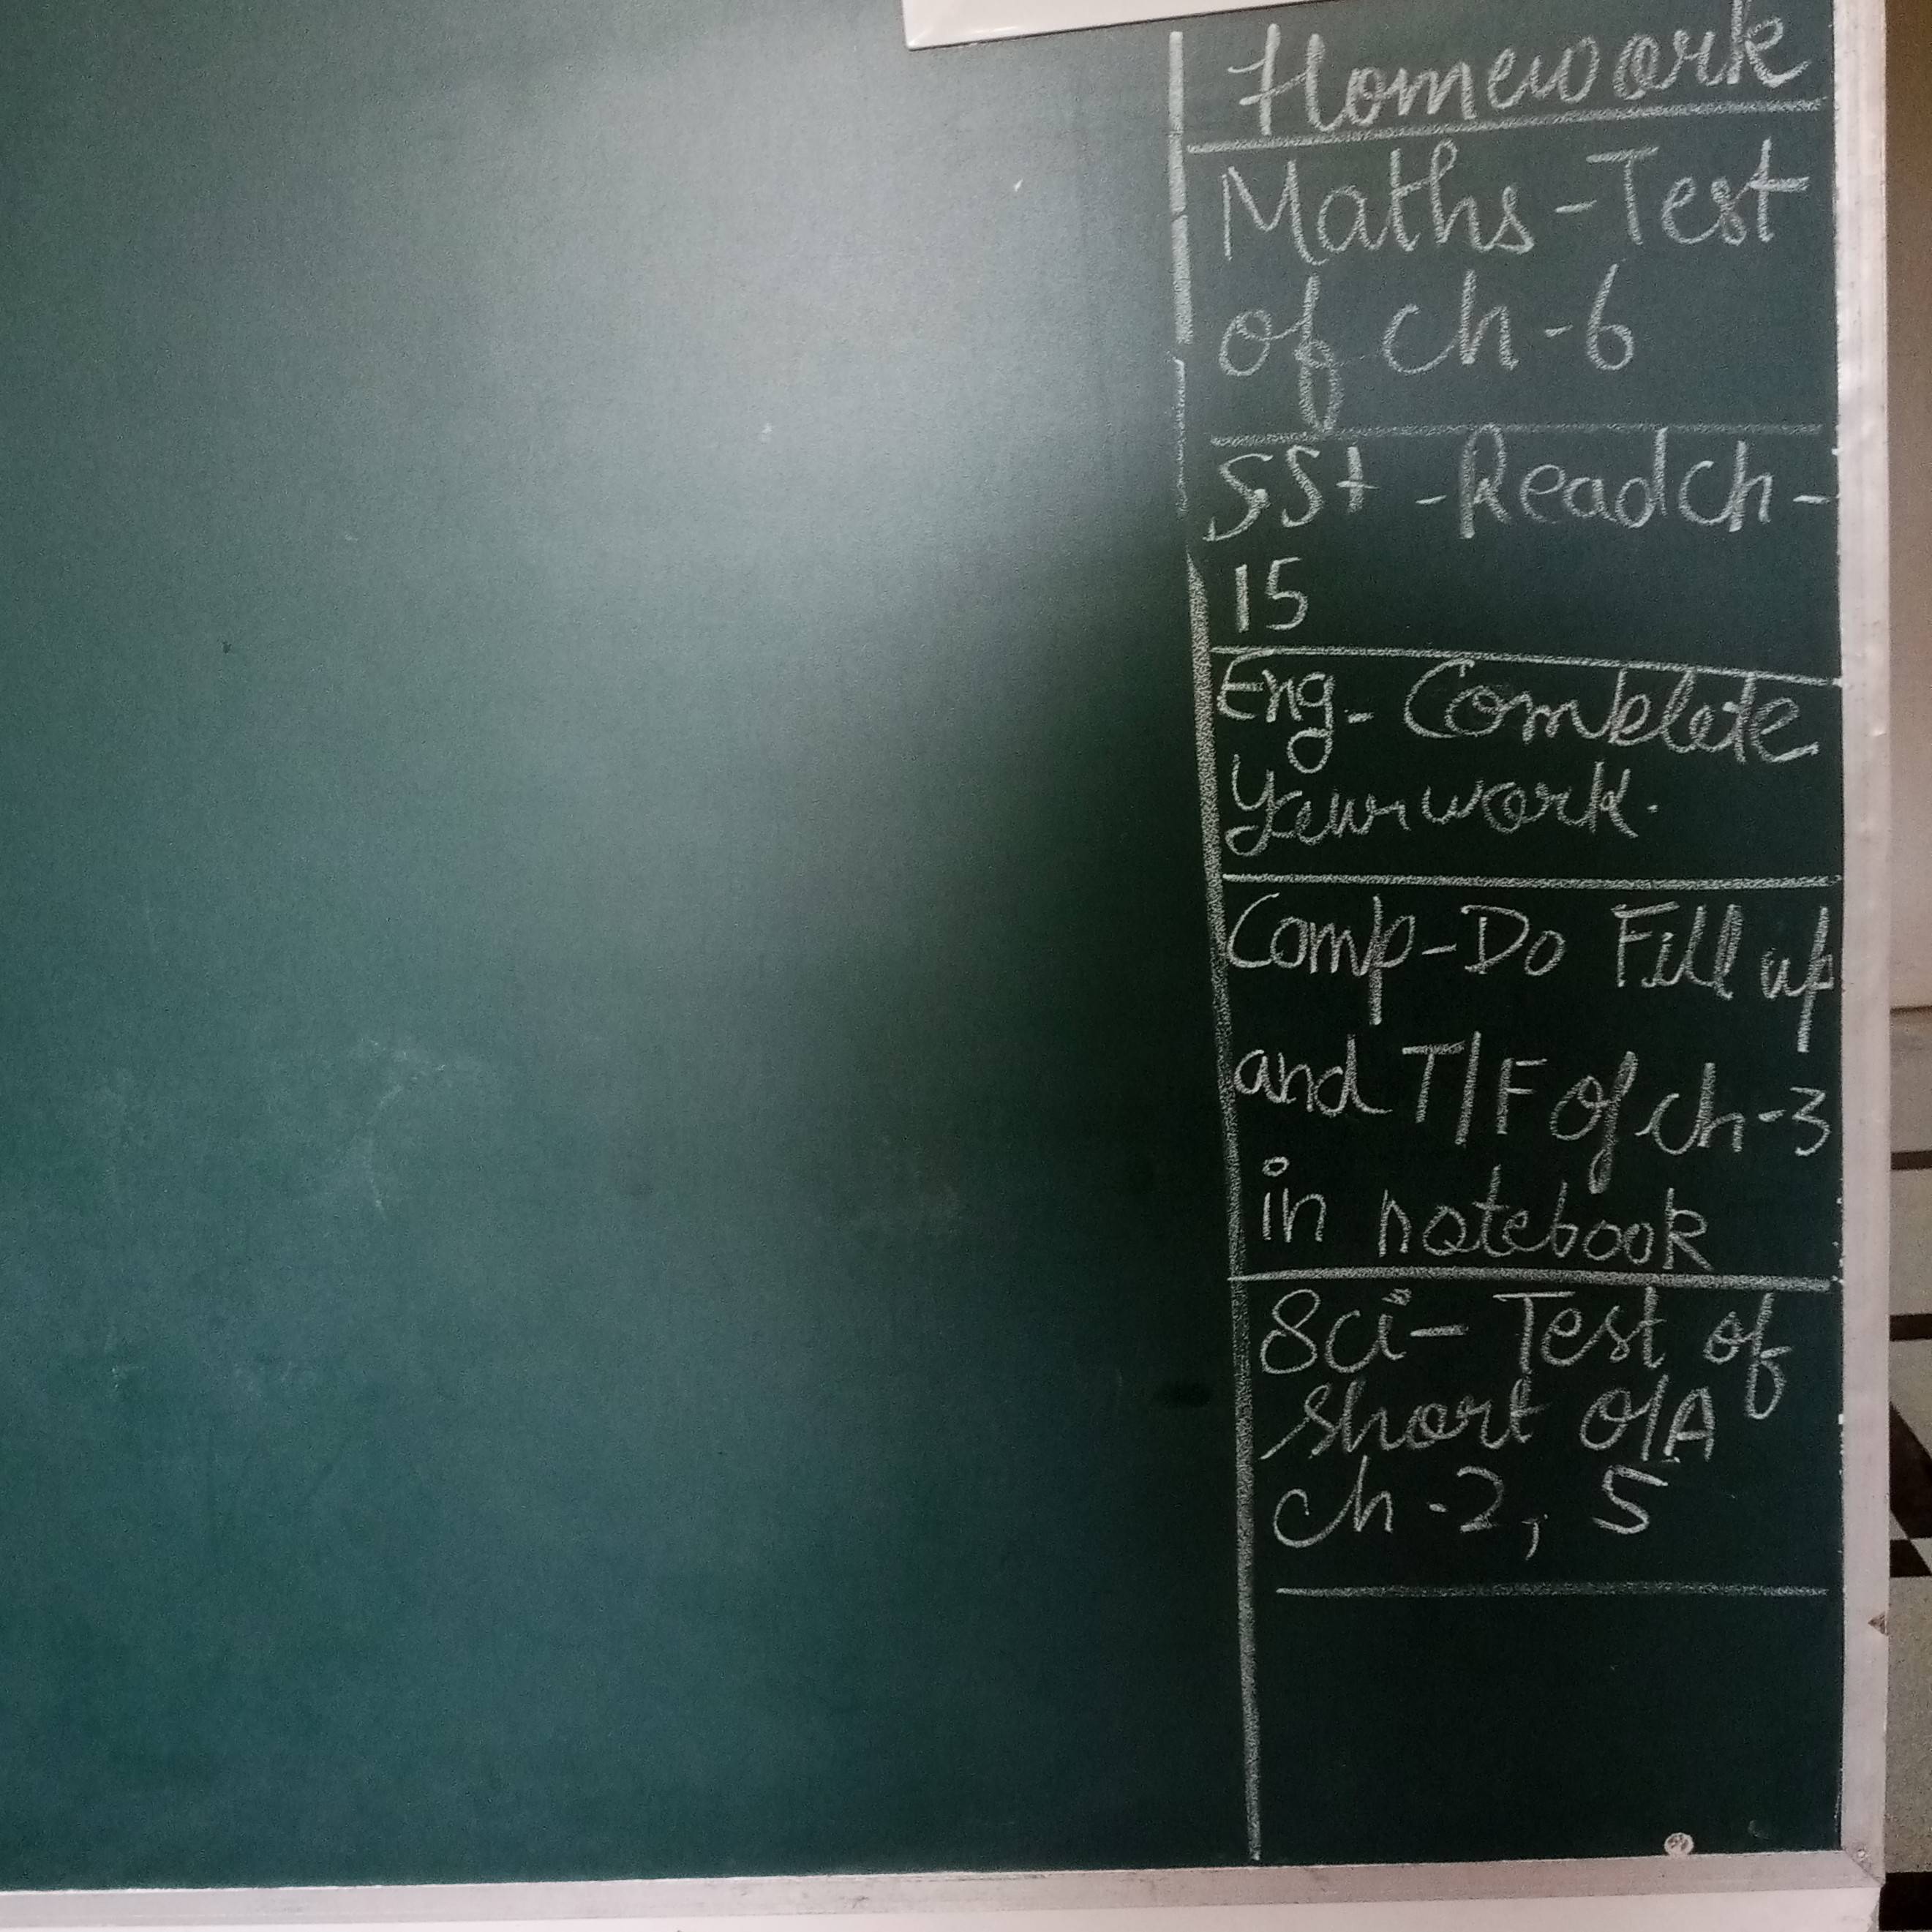 Homework
Maths-Test
of ch-6
SSt-Read Ch-
15
Eng-Complete
Your work.
Comp-Do Fill up
and T/F of ch-3
in notebook
Sci-Test of
Short Q/A
ch-2, 5